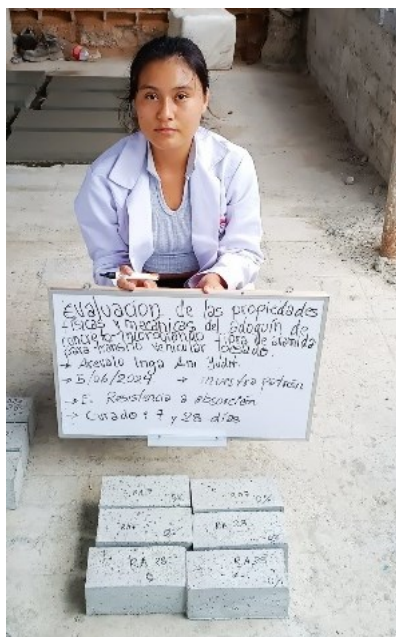 Evaluación de las propiedades
físicas y mecánicas del adoquín de
concreto incorporando fibra de
para transito vehicular pesado.
→ Arevalo Inga Ani
→ 5/06/2024 → muestra patrón
→ E. Resistencia a absorción
→ Curado: 7 y 28 días
RA7 0%
RA7 0%
RA7 0%
RA 28 0%
RA 28 0
RA 28 0%